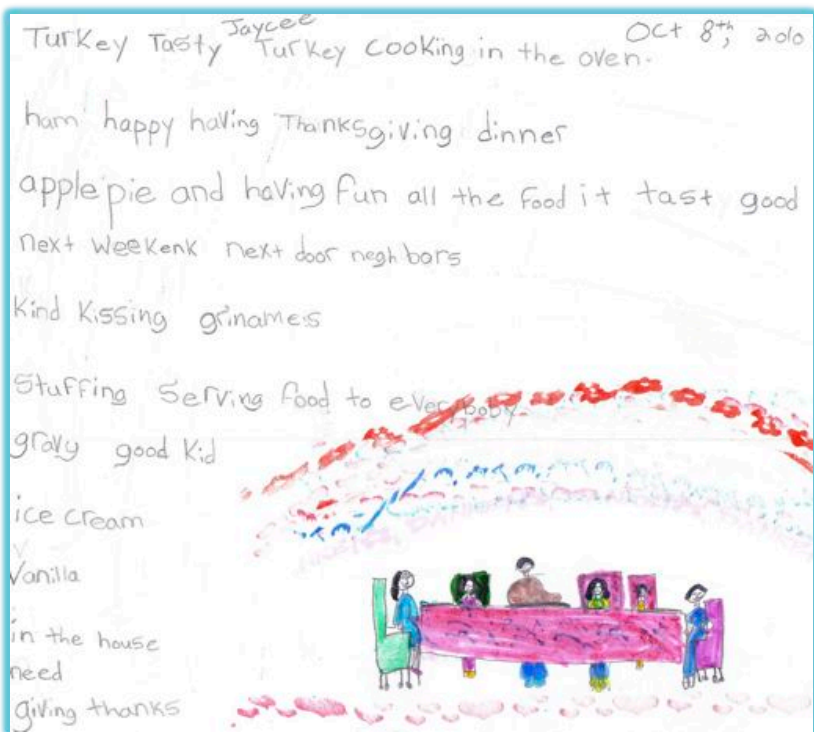 Jaycee
Oct 8th, 2010
Turkey Tasty Turkey cooking in the oven.
ham happy having Thanksgiving dinner
apple pie and having fun all the food it tast good
next weekenk next door neghbors
kind kissing
stuffing serving food to everyboby
gravy good kid
ice cream
vanilla
in the house
need
giving thanks